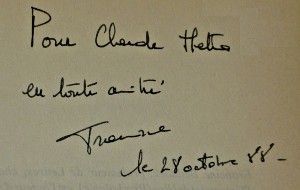 Pour Claude Hetto
en toute amitié
Francine
le 28 octobre 88 -